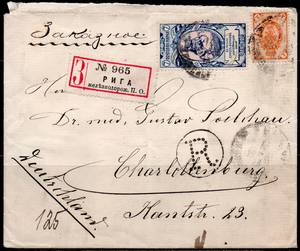 Заказное.
З № 965
РИГА
железнодорож. П. О.
Herrn
Dr. med. Gustav Poelchau.
R
Charlottenburg.
Kantstr. 23.
Deutschland.
125